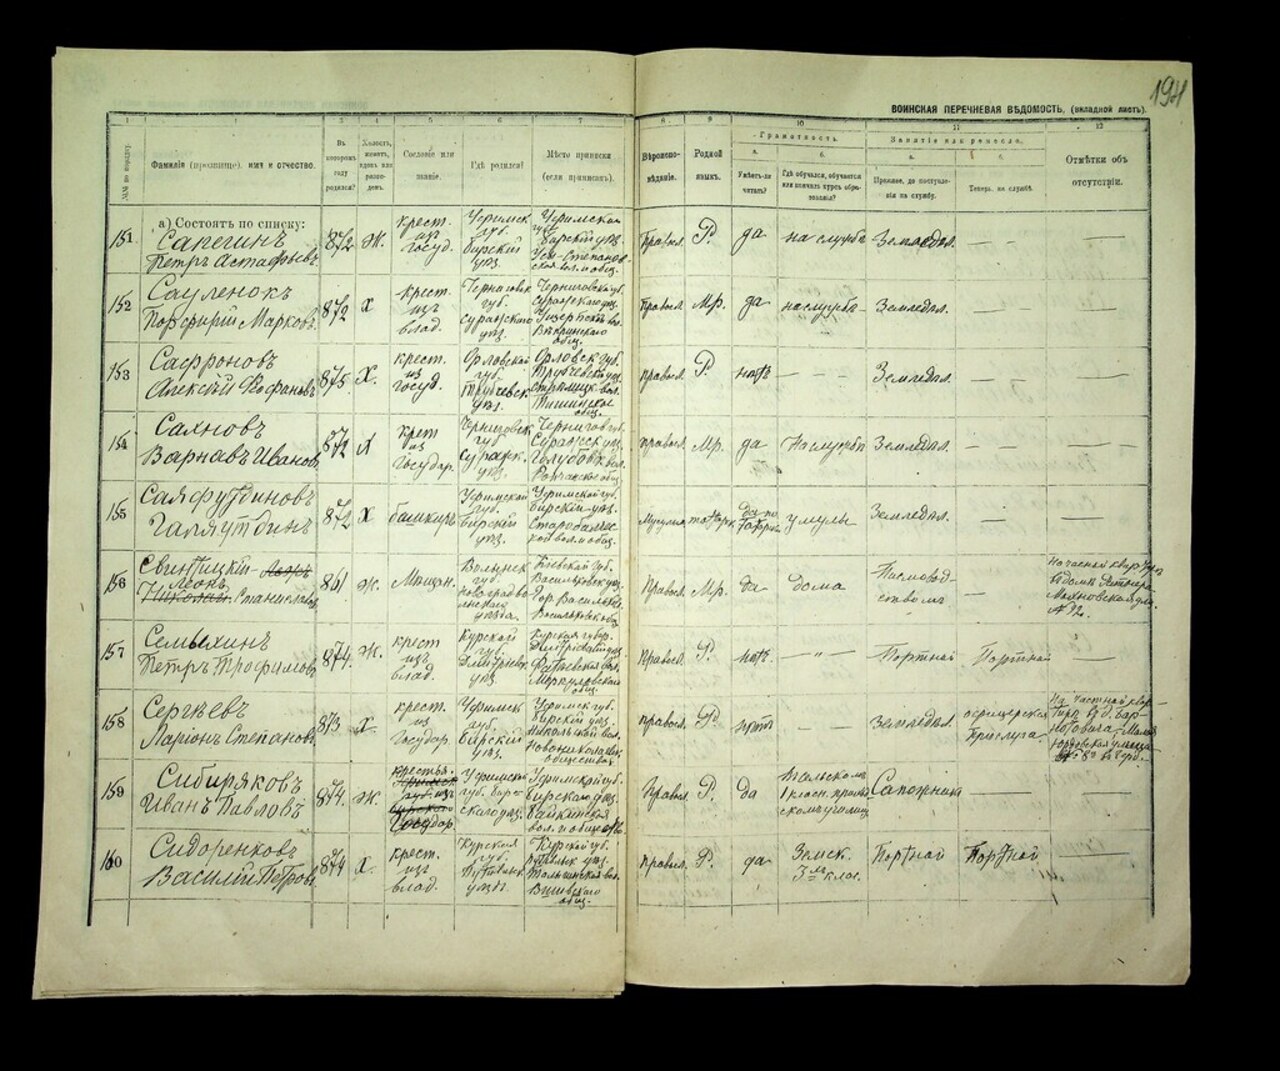 194
ВОИНСКАЯ ПЕРЕЧНЕВАЯ ВѢДОМОСТЬ, (вкладной листъ).
№№ по порядку.
Фамилія (прозвище), имя и отчество.
Въ которомъ году родился?
Холостъ, женатъ, вдовъ или разведенъ.
Сословіе или званіе.
Гдѣ родился?
Мѣсто приписки (если приписанъ).
Вѣроисповѣданіе.
Родной языкъ.
Грамотность.
а. Умѣетъ-ли читать?
б. Гдѣ обучался, обучается или кончилъ курсъ образованія?
Занятіе или ремесло.
а. Прежнее, до поступленія на службу.
б. Теперь, на службѣ.
Отмѣтки объ отсутствіи.
а) Состоятъ по списку:
151
Сапегинъ
Петръ Астафьевъ
872
Ж.
крест.
из
госуд.
Уфимск
губ.
Бирскій
уѣз.
Уфимской
губ.
Бирскій уѣз.
Правосл.
Р.
да
на службѣ
Земледѣл.
152
Сауленокъ
Порфирій Марковъ
872
Х
крест.
изъ
влад.
Черниговск
губ.
Суражскаго
уѣз.
Черниговск губ.
Суражскаго уѣз.
Правосл.
Мр.
да
на службѣ
Земледѣл.
153
Сафроновъ
Алексѣй Феофановъ
875
Х.
крест.
из
госуд.
Орловской
губ.
Трубчевск
уѣз.
Орловск губ.
Трубчевск уѣз.
общ.
правосл.
Р.
нѣтъ
Земледѣл.
154
Сахновъ
Варнавъ Ивановъ
872
Х
крест
из
Государ.
Черниговск
губ
Сураж.
уѣз.
Чернигов губ.
Суражск уѣз.
правосл.
Мр.
да
На службѣ
Земледѣл.
155
Саяфутдиновъ
Галяутдинъ
872
Х
башкиръ
Уфимской
губ.
Бирскій
уѣз.
Уфимской губ.
Бирскій уѣз.
Мусульм.
татарск.
да по
татарски
у муллы
Земледѣл.
156
Свентицкій
Леонъ
Николай Станиславъ
861
Ж.
Мѣщан.
Волынск
губ.
Новоградво-
лынскаго
уѣзда.
Кіевской губ.
Васильковск уѣз.
Гор. Васильк.
Правосл.
Мр.
да
дома
Письмовод-
ствомъ
№ 12.
157
Семыхинъ
Петръ Трофимовъ
874.
Ж.
крест
изъ
влад.
Курской
губ.
Дмитріев.
уѣз.
Курская губер.
Дмитріевск уѣз.
общ.
Правосл.
Р.
нѣтъ.
— " —
Портной
Портной
158
Сергѣевъ
Ларіонъ Степановъ
873
Х.
крест.
из
Государ.
Уфимск
губ.
Бирскій
уѣз.
Уфимск губ.
Бирскій уѣз.
Никольской вол.
Новониколаевск
общества.
правосл.
Р.
нѣтъ
Земледѣл.
офицерская
прислуга
159
Сибиряковъ
Иванъ Павловъ
874.
Ж
крестья.
изъ
Государ.
Уфимск
губ. Бир-
скаго уѣз.
Уфимской губ.
Бирскаго уѣз.
Байкинская
вол. и общества.
Правосл.
Р.
да
Сапожника
160
Сидоренковъ
Василій Петровъ
874
Х.
крест.
изъ
влад.
Курская
губ.
Путивльск.
уѣзд.
Курской губ.
Путивльск уѣз.
общ.
правосл.
Р.
да
Земск.
3 клас.
Портной
Портной